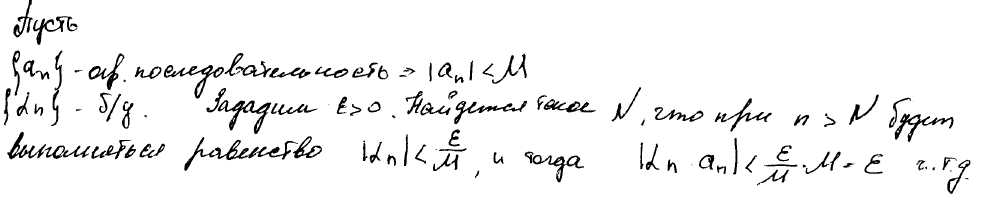 Пусть
{aₙ} - огр. последовательность => |aₙ| < M
{αₙ} - б/м. Зададим ε>0. Найдется такое N, что при n > N будет
выполняться равенство |αₙ| < ε/M, и тогда |αₙ · aₙ| < ε/M · M = ε ч.т.д.